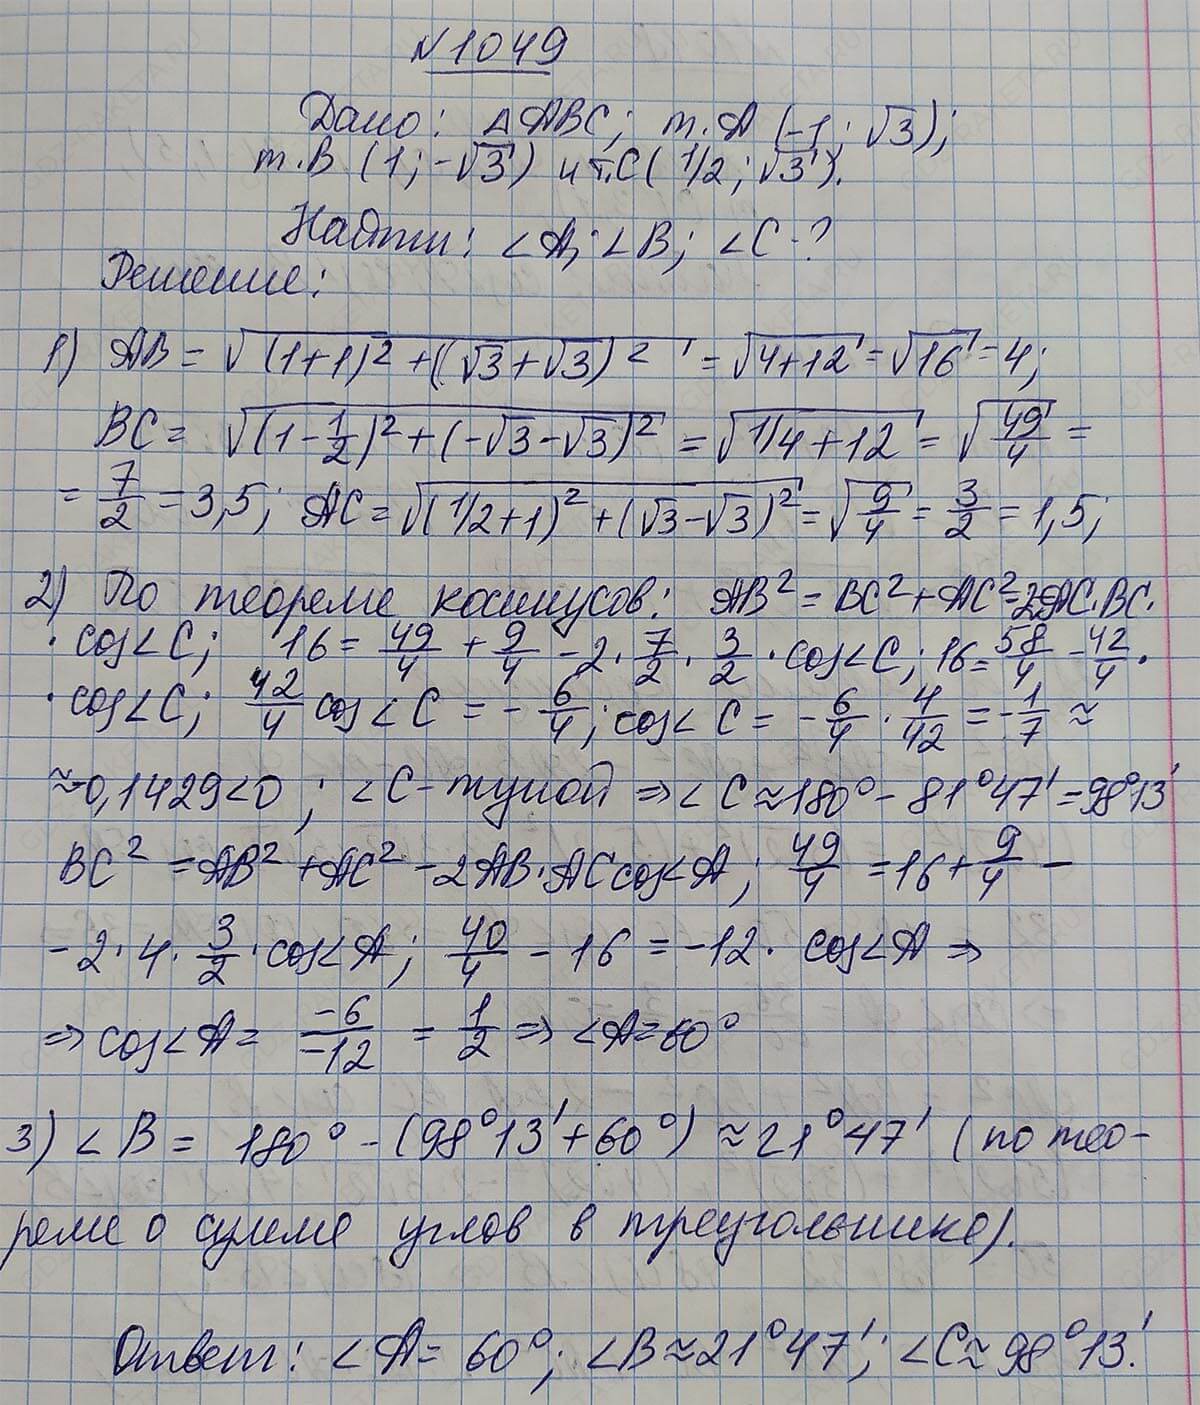 №1049
Дано: △ABC; т.A (-1; √3);
т.B (1; -√3) и т.C (1/2; √3).
Найти: ∠A; ∠B; ∠C - ?
Решение:
1) AB = √((1+1)² + (√3+√3)²) = √(4+12) = √16 = 4;
BC = √((1-1/2)² + (-√3-√3)²) = √(1/4+12) = √(49/4) =
= 7/2 = 3,5; AC = √((1/2+1)² + (√3-√3)²) = √(9/4) = 3/2 = 1,5;
2) По теореме косинусов: AB² = BC² + AC² - 2AC·BC·
· cos∠C; 16 = 49/4 + 9/4 - 2 · 7/2 · 3/2 · cos∠C; 16 = 58/4 - 42/4 ·
· cos∠C; 42/4 cos∠C = - 6/4; cos∠C = - 6/4 · 4/42 = - 1/7 ≈
≈ -0,1429 < 0; ∠C - тупой ⇒ ∠C ≈ 180° - 81°47' = 98°13'
BC² = AB² + AC² - 2AB·AC cos∠A; 49/4 = 16 + 9/4 -
- 2 · 4 · 3/2 · cos∠A; 40/4 - 16 = -12 · cos∠A ⇒
⇒ cos∠A = -6/-12 = 1/2 ⇒ ∠A = 60°
3) ∠B = 180° - (98°13' + 60°) ≈ 21°47' (по тео-
реме о сумме углов в треугольнике).
Ответ: ∠A = 60°; ∠B ≈ 21°47'; ∠C ≈ 98°13'.